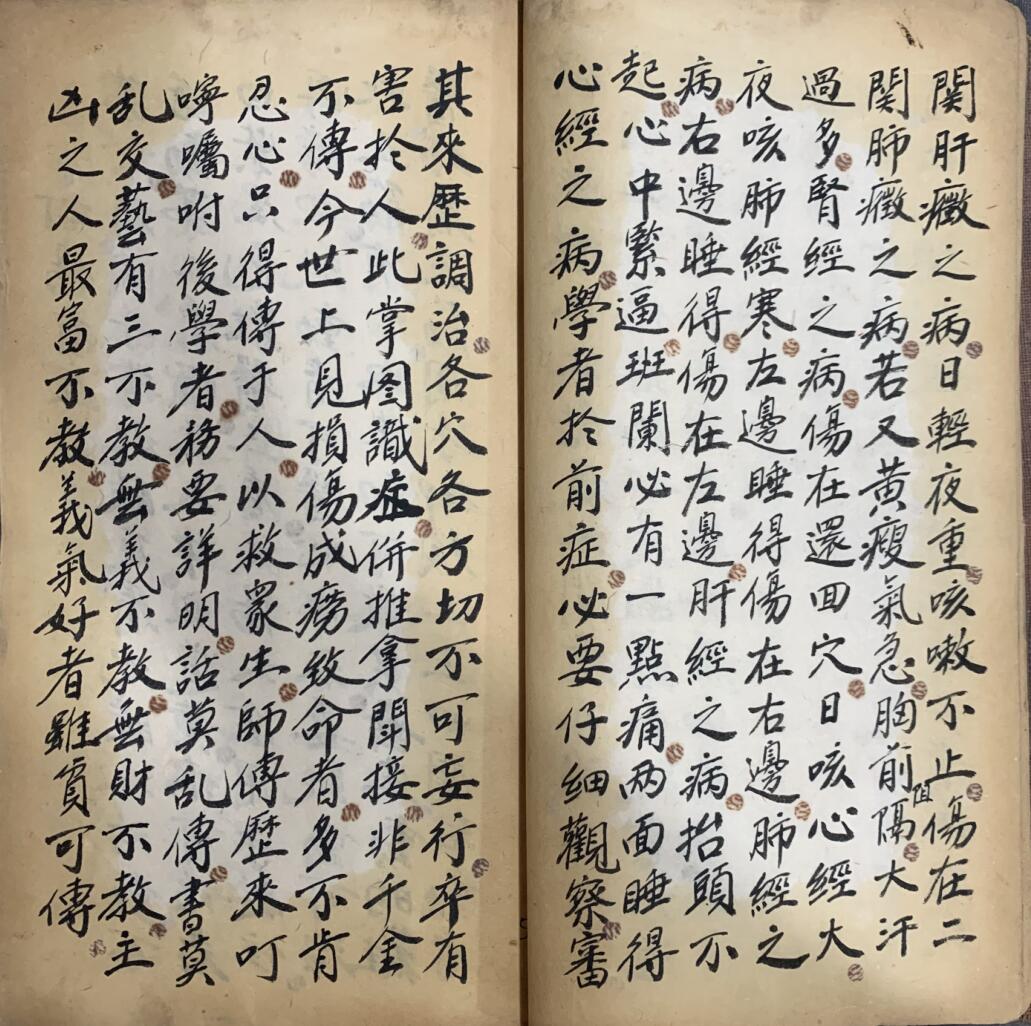 関肝癥之病日輕夜重咳嗽不止傷在二
関肺癥之病若又黄瘦氣急胸前阻隔大汗
過多腎經之病傷在還回穴日咳心經火
夜咳肺經寒左邊睡得傷在右邊肺經之
病右邊睡得傷在左邊肝經之病抬頭不
起心中緊逼班闌必有一點痛两面睡得
心經之病學者扵前症必要仔细觀察審
其來歷調治各穴各方切不可妄行卒有
害扵人此掌图識症併推拿鬪接非千金
不傳今世上見損傷成癆致命者多不肯
忍心只得傳于人以救衆生師傅歷來叮
嚀囑咐後學者務要詳明話莫乱傳書莫
乱交藝有三不教無義不教無財不教主
凶之人最富不教義氣好者雖貧可傳